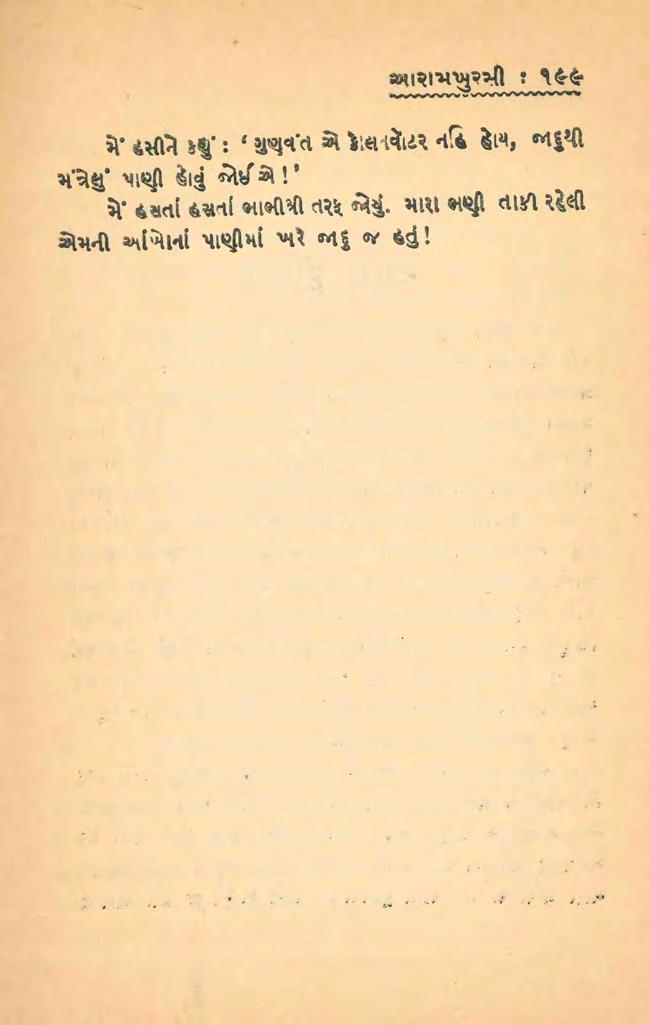 આરામખુરસી : ૧૯૯
મેં હસીને કહ્યું : ‘ ગુણવંત એ કોલનવોટર નહિ હોય, જાદુથી
મંત્રેલું પાણી હોવું જોઈએ !’
મેં હસતાં હસતાં ભાભીશ્રી તરફ જોયું. મારા ભણી તાકી રહેલી
એમની આંખોનાં પાણીમાં ખરે જાદુ જ હતું !